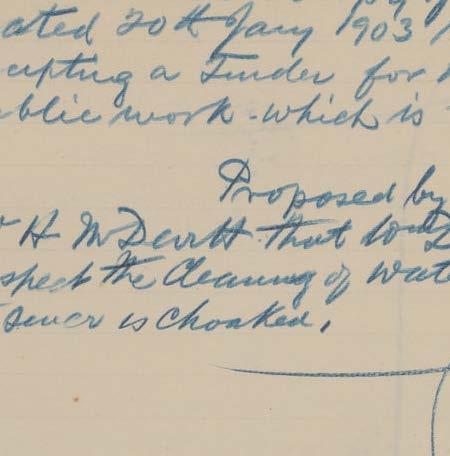 ated 20th Jany 1903
cepting a Tinder for
ublic work which is
Proposed by
H McDevitt that
spect the Cleaning of Wate
Sewer is Choaked.